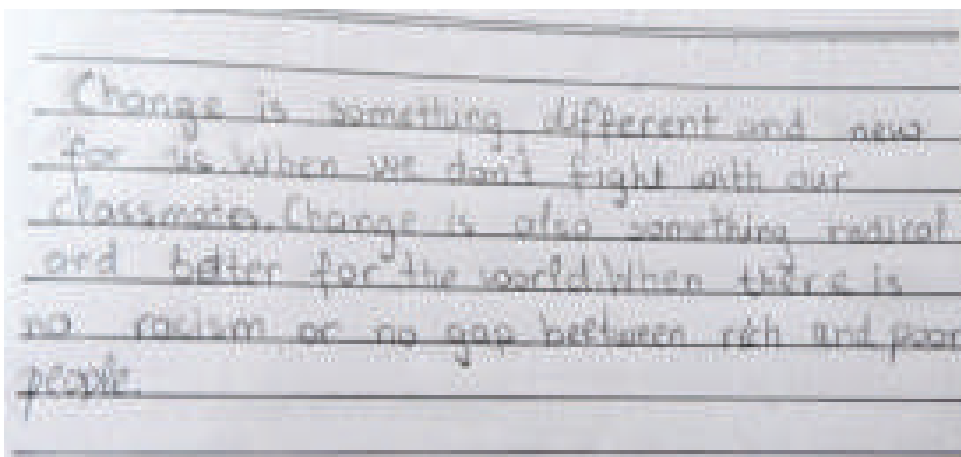 Change is something different and new
for us. When we don't fight with our
classmates. Change is also something radical
and better for the world. When there is
no racism or no gap beetween rich and poor
people.